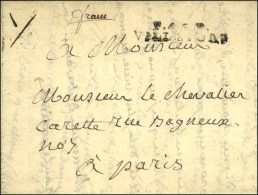 franc
A Monsieur
Monsieur le Chevalier
Carette rue Bagneux
no 7
à paris